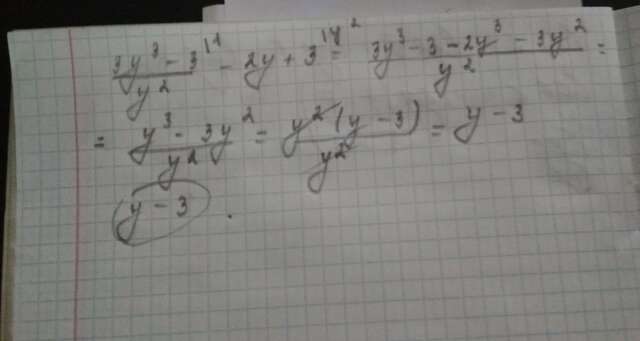 (3y³ - 3)/y² |¹ - 2y + 3 |y² = (3y³ - 3 - 2y³ - 3y²)/y² =
= (y³ - 3y²)/y² = y²(y - 3)/y² = y - 3
y - 3.